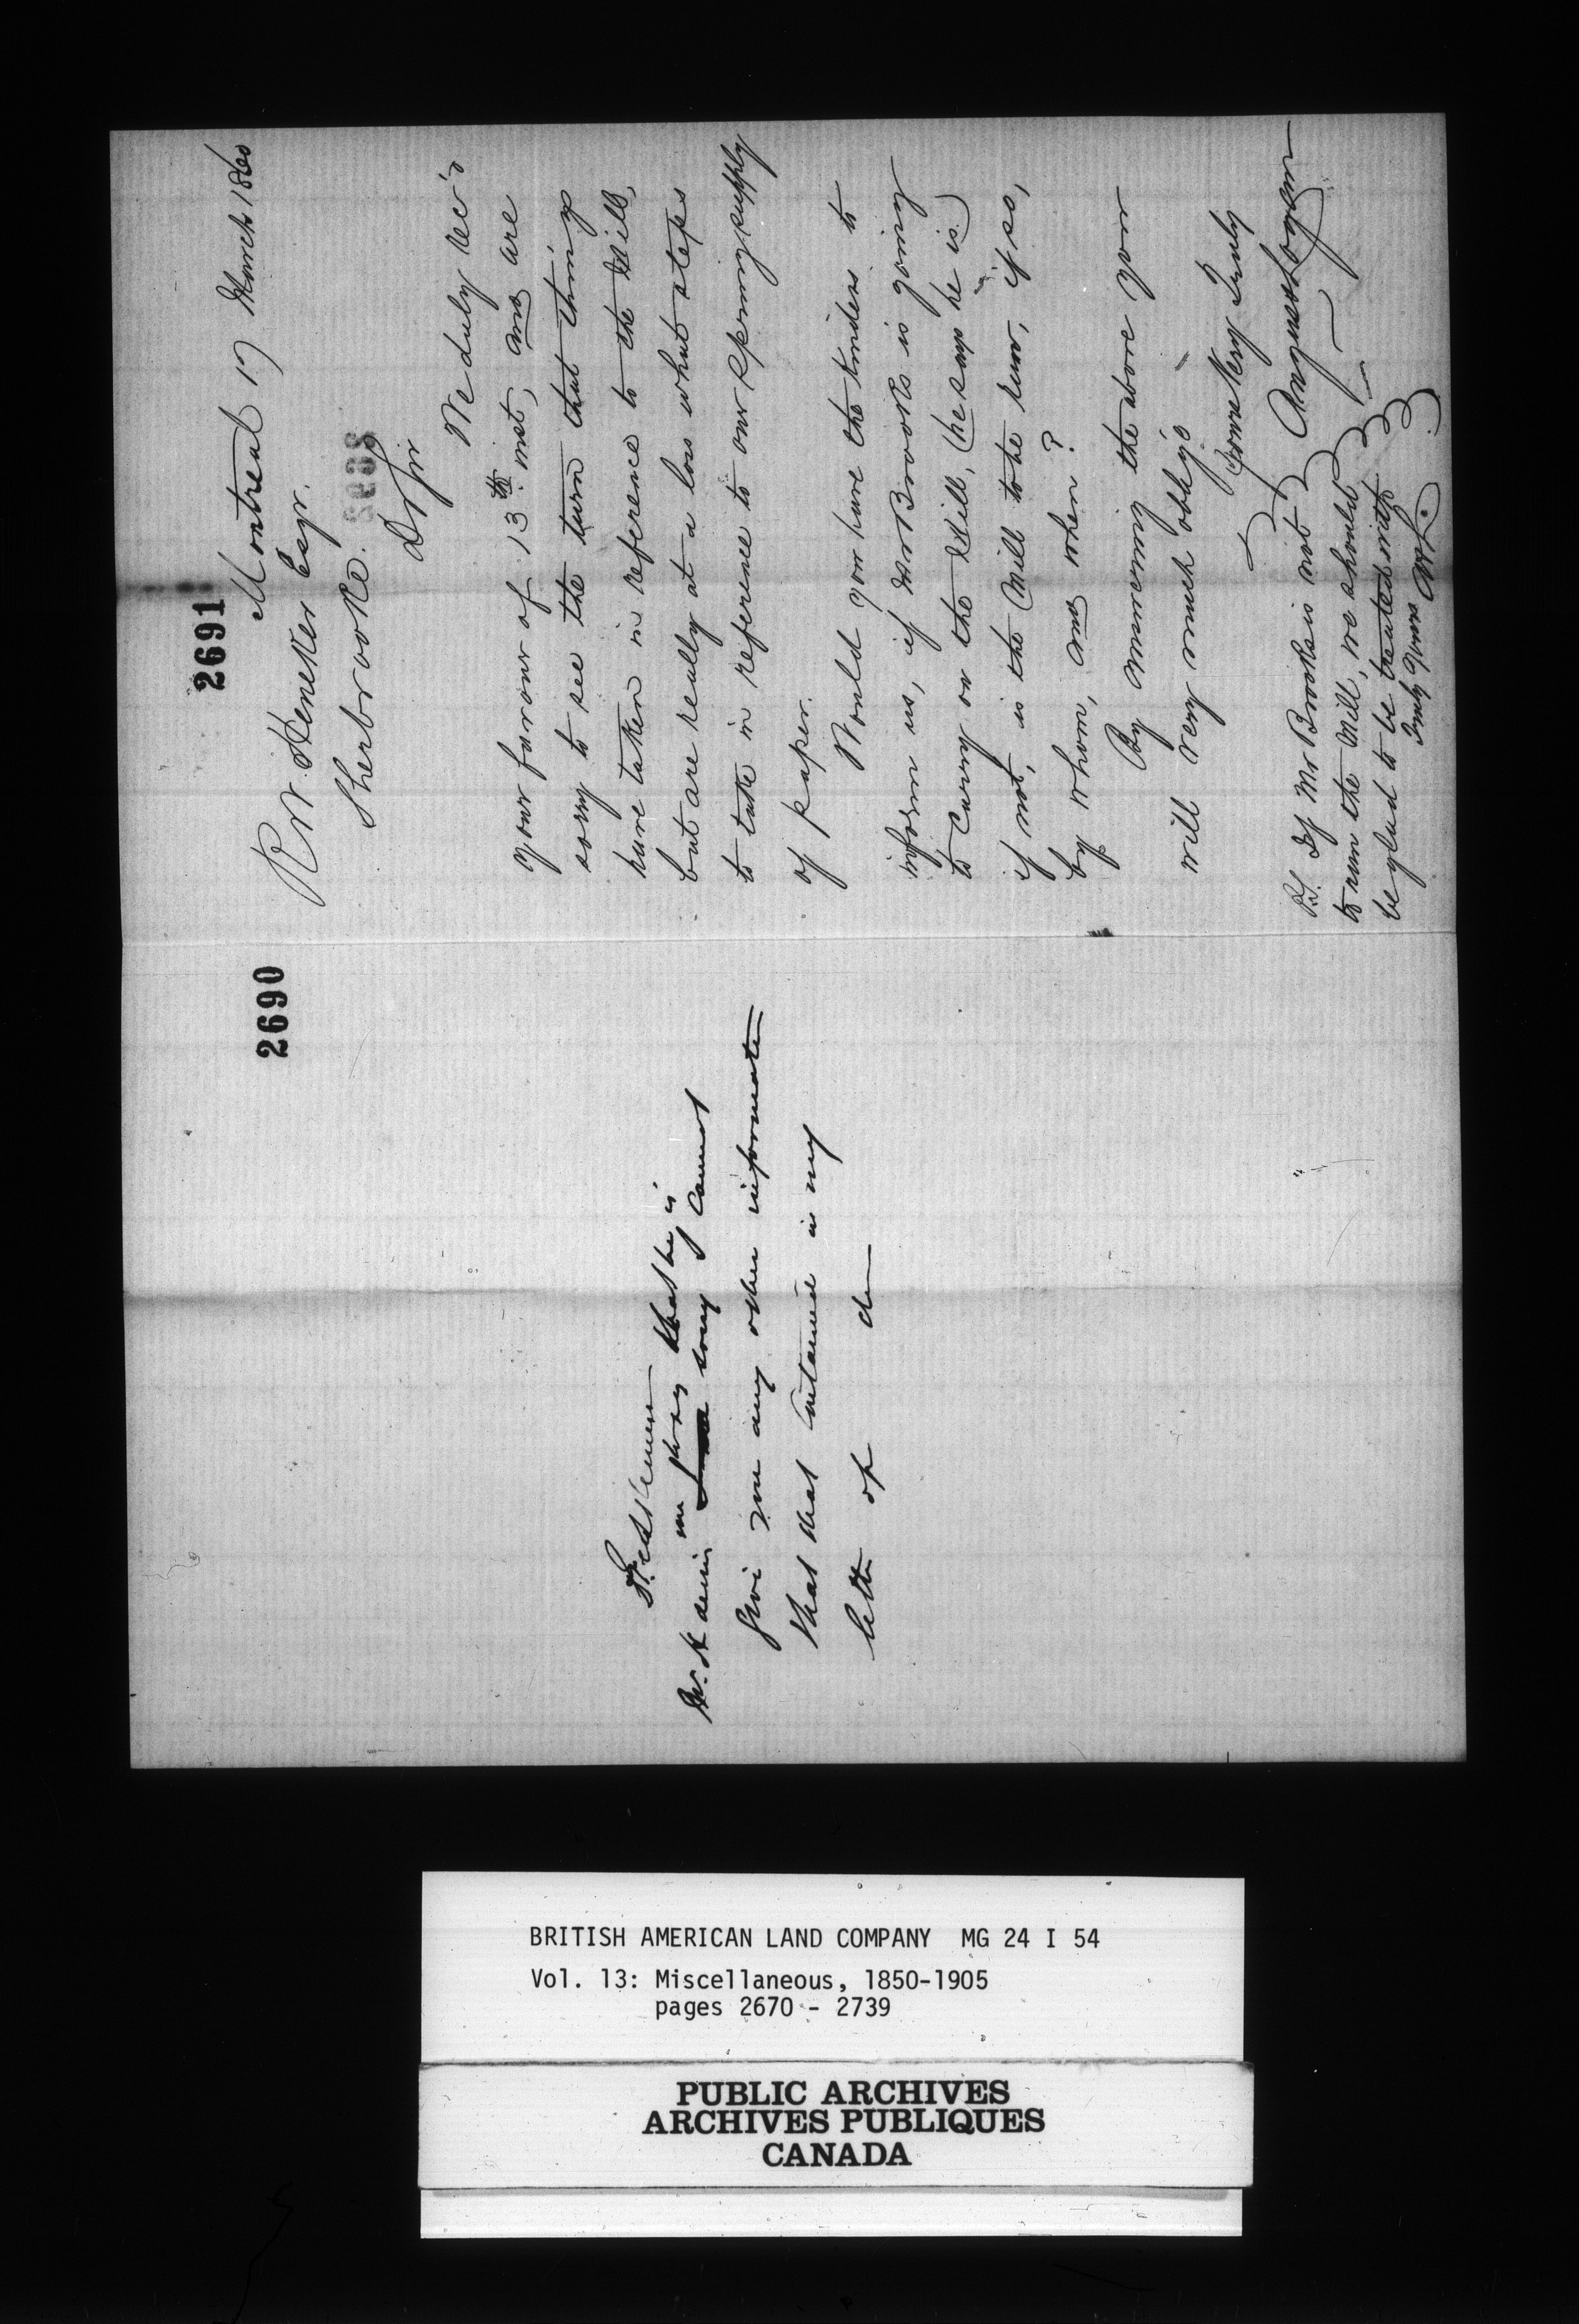 2691
Montreal 17 March 1860
R W. Heneker Esqr.
Sherbrooke.
Dr Sir
We duly rec'd
your favour of 13th inst, and are
sorry to see the turn that things
have taken in reference to the Mill,
but are really at a loss what steps
to take in reference to our spring supply
of paper.
Would you have the kindness to
inform us, if Mr Brooks is going
to carry on the Mill, (he says he is)
if not, is the Mill to be run, if so,
by whom, and when?
By answering the above you
will very much oblige
Yours Very Truly
Angus & Logan
P.S. If Mr Brooks is not
to run the Mill, we should
be glad to be treated with
Truly Yours
2690
Gentlemen
Mr. H desires me to say that he is
sorry cannot
give you any other information
than that contained in my
letter of
BRITISH AMERICAN LAND COMPANY MG 24 I 54
Vol. 13: Miscellaneous, 1850-1905
pages 2670 - 2739
PUBLIC ARCHIVES
ARCHIVES PUBLIQUES
CANADA